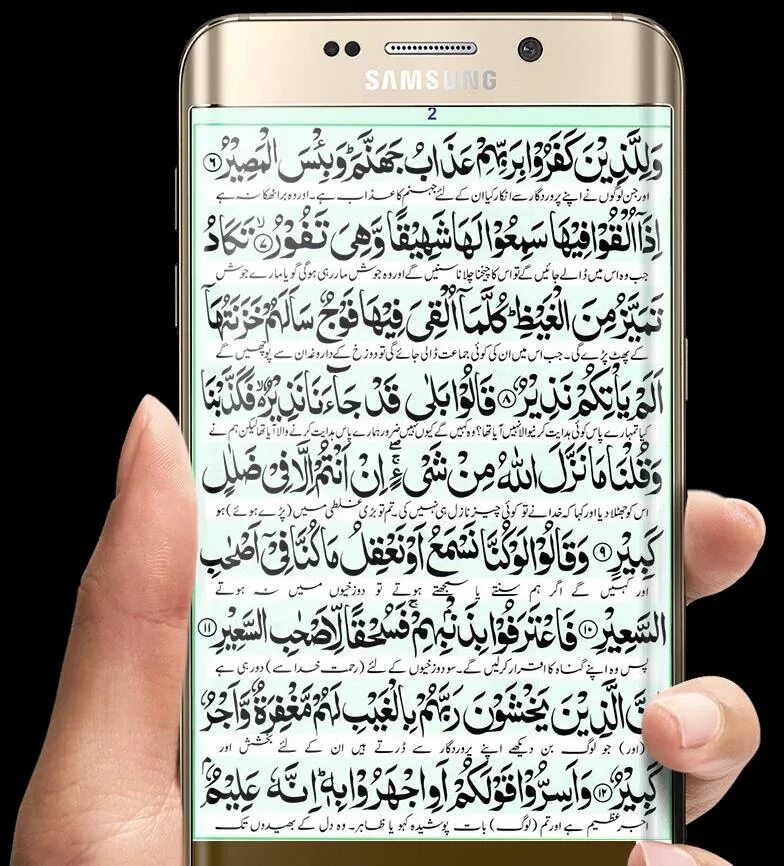 SAMSUNG
2
وَلِلَّذِيْنَ كَفَرُوْا بِرَبِّهِمْ عَذَابُ جَهَنَّمَ ؕ وَبِئْسَ الْمَصِيْرُ ۶
اور جن لوگوں نے اپنے پروردگار سے انکار کیا ان کے لئے جہنم کا عذاب ہے۔ اور وہ برا ٹھکانہ ہے
اِذَاۤ اُلْقُوْا فِيْهَا سَمِعُوْا لَهَا شَهِيْقًا وَّهِىَ تَفُوْرُ ۙ ۷ تَكَادُ
جب وہ اس میں ڈالے جائیں گے تو اس کا چیخنا چلانا سنیں گے اور وہ جوش مار رہی ہوگی گویا مارے جوش
تَمَيَّزُ مِنَ الْغَيْظِ ؕ كُلَّمَاۤ اُلْقِىَ فِيْهَا فَوْجٌ سَاَلَهُمْ خَزَنَتُهَاۤ
کے پھٹ پڑے گی۔ جب اس میں ان کی کوئی جماعت ڈالی جائے گی تو دوزخ کے داروغہ ان سے پوچھیں گے
اَلَمْ يَاْتِكُمْ نَذِيْرٌ ۸ قَالُوْا بَلٰى قَدْ جَآءَنَا نَذِيْرٌ ۙ فَكَذَّبْنَا
کیا تمہارے پاس کوئی ہدایت کرنیوالا نہیں آیا تھا؟ وہ کہیں گے کیوں نہیں ضرور ہمارے پاس ہدایت کرنے والا آیا تھا لیکن ہم نے
وَقُلْنَا مَا نَزَّلَ اللّٰهُ مِنْ شَىْءٍ ۖۚ اِنْ اَنْتُمْ اِلَّا فِىْ ضَلٰلٍ
اس کو جھٹلا دیا اور کہا کہ خدا نے تو کوئی چیز نازل ہی نہیں کی۔ تم تو بڑی غلطی میں (پڑے ہوئے) ہو
كَبِيْرٍ ۹ وَقَالُوْا لَوْ كُنَّا نَسْمَعُ اَوْ نَعْقِلُ مَا كُنَّا فِىْۤ اَصْحٰبِ
اور کہیں گے اگر ہم سنتے یا سمجھتے ہوتے تو دوزخیوں میں نہ ہوتے
السَّعِيْرِ ۱۰ فَاعْتَرَفُوْا بِذَنْۢبِهِمْ ۚ فَسُحْقًا لِّاَصْحٰبِ السَّعِيْرِ ۱۱
پس وہ اپنے گناہ کا اقرار کر لیں گے۔ سو دوزخیوں کے لئے (رحمت خدا سے) دوری ہے
اِنَّ الَّذِيْنَ يَخْشَوْنَ رَبَّهُمْ بِالْغَيْبِ لَهُمْ مَّغْفِرَةٌ وَّاَجْرٌ
(اور) جو لوگ بن دیکھے اپنے پروردگار سے ڈرتے ہیں ان کے لئے بخشش اور
كَبِيْرٌ ۱۲ وَاَسِرُّوْا قَوْلَكُمْ اَوِ اجْهَرُوْا بِهٖ ؕ اِنَّهٗ عَلِيْمٌۢ
اجر عظیم ہے اور تم (لوگ) بات پوشیدہ کہو یا ظاہر۔ وہ دل کے بھیدوں تک